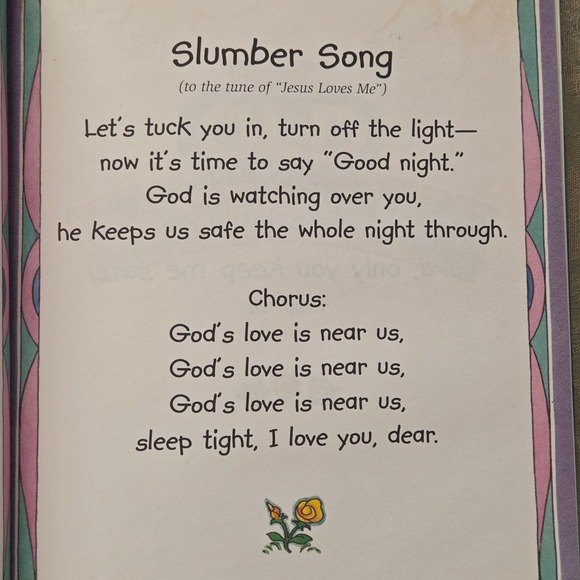 Slumber Song
(to the tune of “Jesus Loves Me”)
Let's tuck you in, turn off the light—
now it's time to say "Good night."
God is watching over you,
he keeps us safe the whole night through.
Chorus:
God's love is near us,
God's love is near us,
God's love is near us,
sleep tight, I love you, dear.